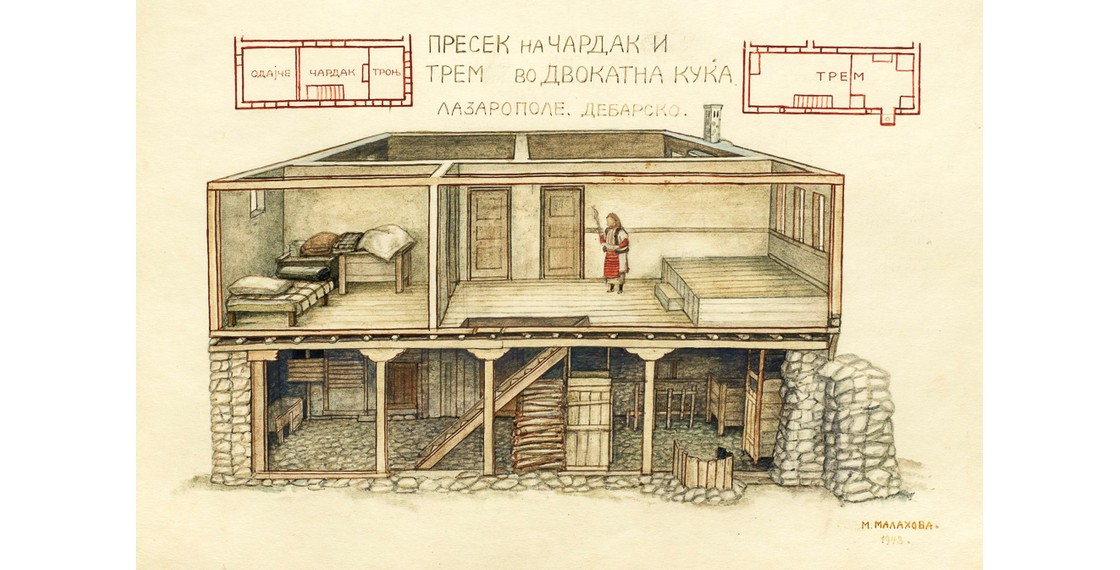 ОДАЈЧЕ ЧАРДАК ТРОЊ
ПРЕСЕК НА ЧАРДАК И
ТРЕМ ВО ДВОКАТНА КУЌА
ЛАЗАРОПОЛЕ. ДЕБАРСКО.
ТРЕМ
М. МАЛАХОВА.